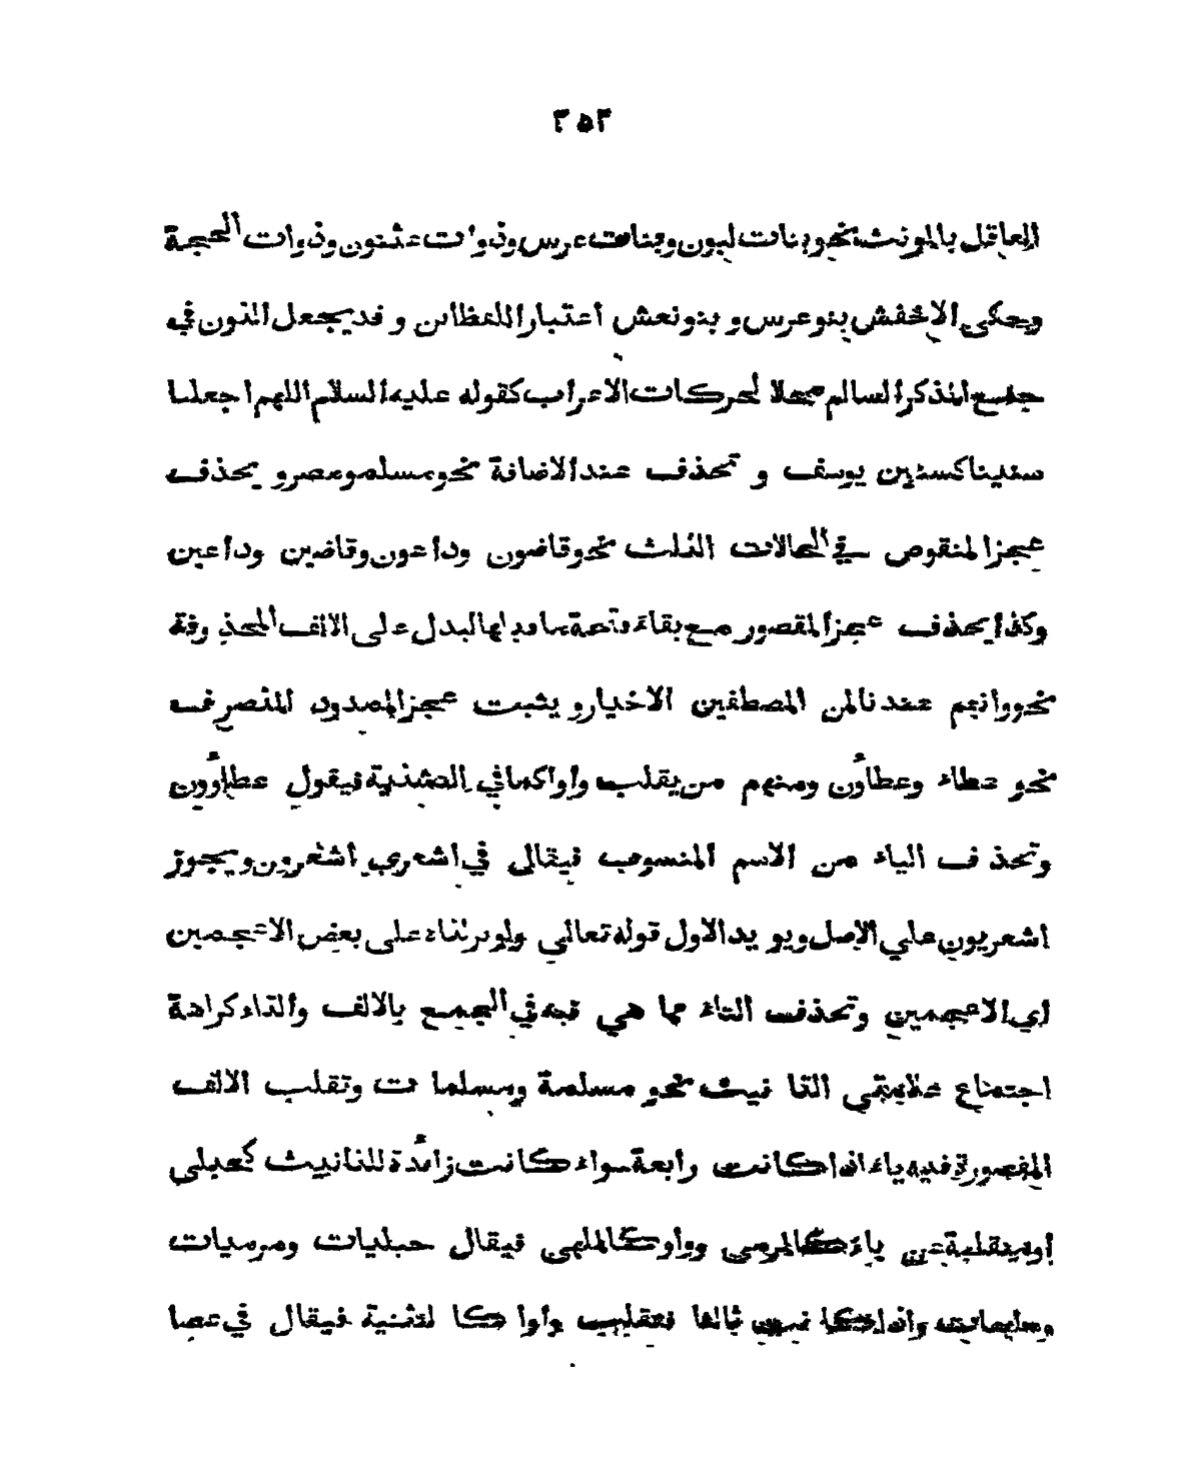 ٢٥٢
العاقل بالمونث نحو بنات لبون وبنات عرس وذوات عثنون وذوات الحجة
وحكي الاخفش بنو عرس و بنو نعش اعتبارا اللفظا و قد يجعل النون في
جمع المذكر السالم محلا لحركات الاعراب كقوله عليه السلام اللهم اجعلها
سنينا كسنين يوسف و تحذف عند الاضافة نحو مسلمو مصر و يحذف
عجز المنقوص في الحالات الثلث نحو قاضون وداعون وقاضين وداعين
وكذا يحذف عجز المقصور مع بقاء فتحة ما قبلها لبدل على الالف المحذوفة
نحو وانهم عندنا لمن المصطفين الاخيار و يثبت عجز الممدود المنصرف
نحو عطاء وعطاؤن ومنهم من يقلب واوا كما في التثنية فيقول عطاوون
وتحذف الياء من الاسم المنسوب فيقال في اشعري اشعرون ويجوز
اشعريون علي الاصل ويويد الاول قوله تعالي ولو نزلناه على بعض الاعجمين
اي الاعجميين وتحذف التاء مما هي فيه في الجمع بالالف والتاء كراهة
اجتماع علامتي التا نيث نحو مسلمة ومسلما ت وتقلب الالف
المقصورة فيه ياء اذا كانت رابعة سواء كانت زائدة للتانيث كحبلي
او منقلبة عن ياء كالمرمي وواو كالملهي فيقال حبليات ومرميات
وملهيات واذا كا نت ثالثا فتقلب واوا كا لتثنية فيقال في عصا